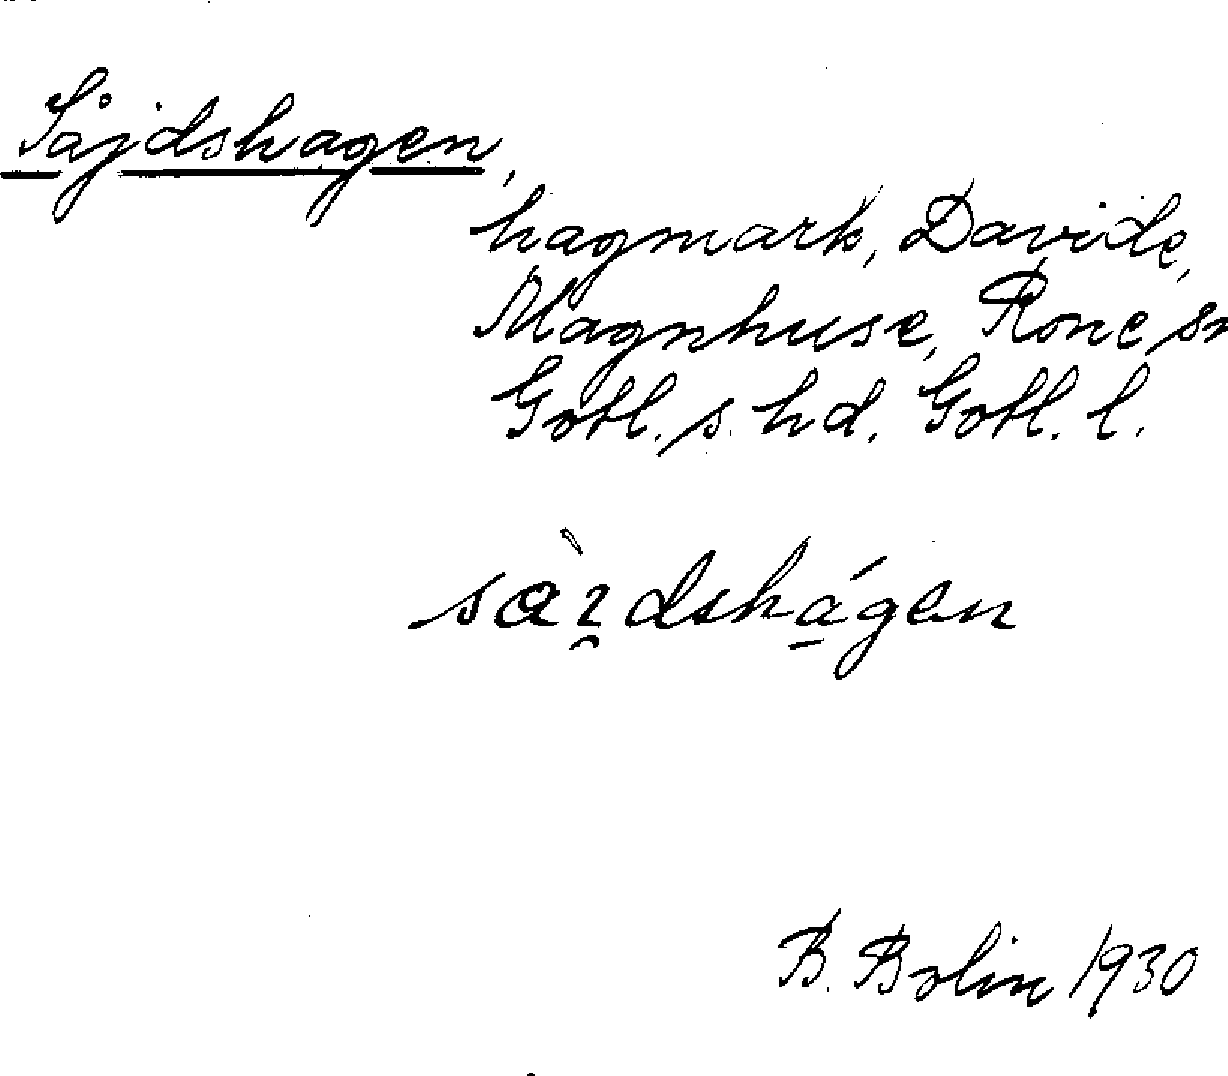 Såjdshagen,
hagmark, Davide,
Magnhuse, Rone sn
Gotl. s. hd. Gotl. l.
B. Bolin 1930